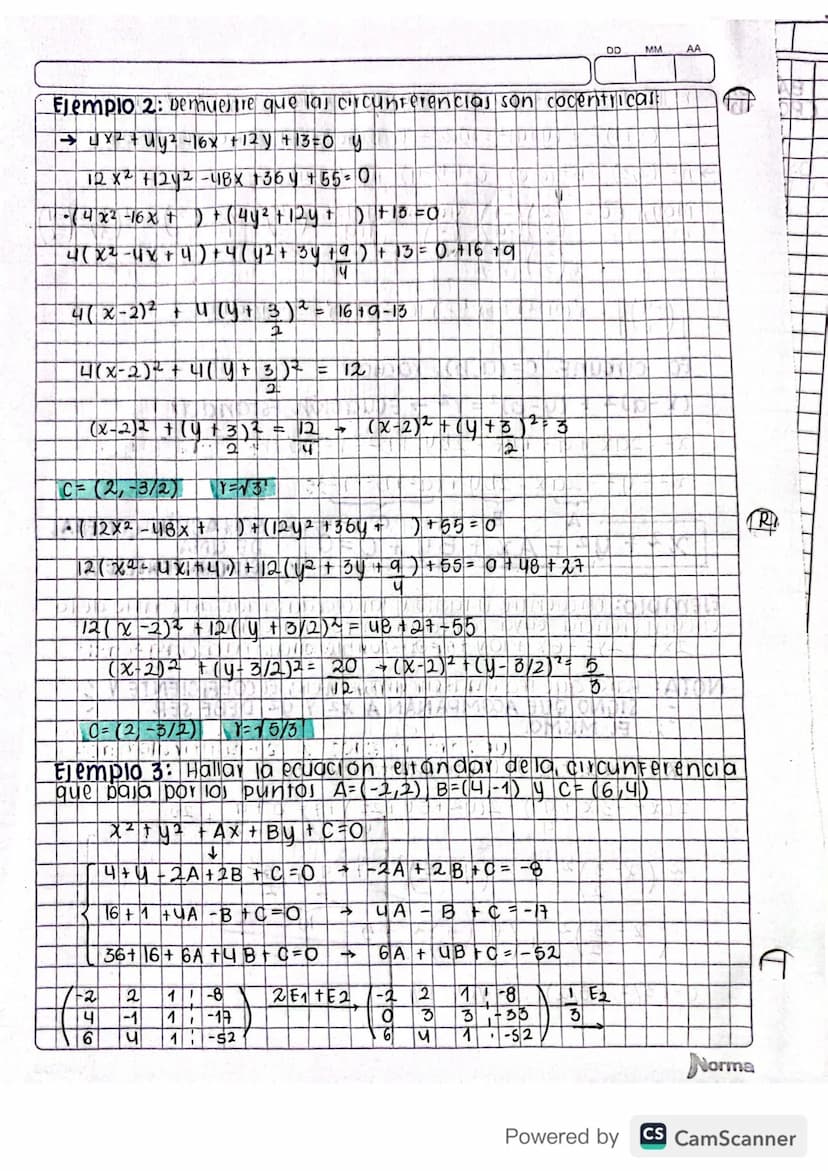 DD MM AA
Ejemplo 2: Demuestre que las circunferencias son cocentricas:
→ 4x² + 4y² -16x +12y +13=0 y
12x² +12y² -48x +36y +55=0
·(4x² -16x + ) + (4y² +12y + ) +13=0
4(x² -4x +4) + 4(y² + 3y + 9/4) + 13 = 0 +16 +9
4(x-2)² + 4(y + 3/2)² = 16+9-13
4(x-2)² + 4(y + 3/2)² = 12
(x-2)² + (y + 3/2)² = 12/4 → (x-2)² + (y + 3/2)² = 3
C= (2, -3/2) r=√3
(12x² -48x + ) + (12y² +36y + ) +55=0
12(x² -4x +4) + 12(y² + 3y + 9/4) +55= 0 +48 +27
12(x -2)² +12(y + 3/2)² = 48 +27-55
(x-2)² + (y- 3/2)² = 20/12 → (x-2)² + (y- 3/2)² = 5/3
C= (2, -3/2) r=√5/3
Ejemplo 3: Hallar la ecuación estándar de la circunferencia
que pasa por los puntos A=(-2,2), B=(4,-1) y C= (6,4)
x² + y² + Ax + By + C=0
↓
4+4 -2A +2B + C =0 → -2A + 2B + C = -8
16 +1 +4A -B + C=0 → 4A - B + C = -17
36+ 16+ 6A +4B + C=0 → 6A + 4B + C = -52
-2 2 1 ¦ -8 2E1 +E2 -2 2 1 ¦ -8 1/3 E2
4 -1 1 ¦ -17 → 0 3 3 ¦ -33 →
6 4 1 ¦ -52 6 4 1 ¦ -52
Norma
Powered by CS CamScanner